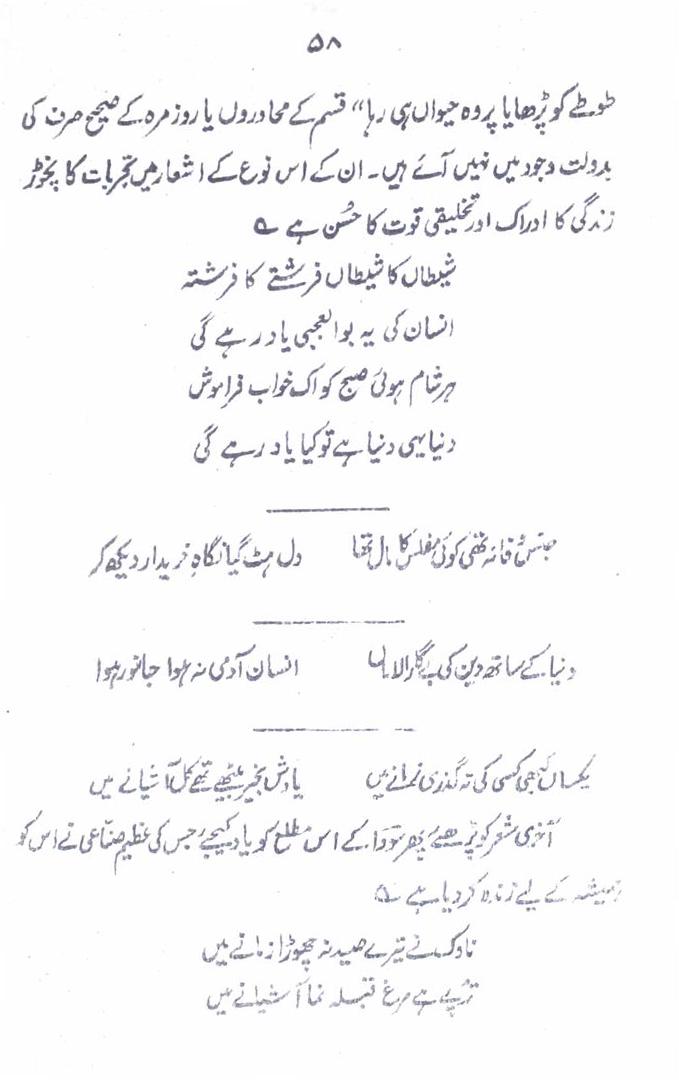 ۵۸
طوطے کو پڑھایا پر وہ حیواں ہی رہا“ قسم کے محاوروں یا روزمرہ کے صحیح صرف کی
بدولت وجود میں نہیں آئے ہیں۔ ان کے اس نوع کے اشعار میں تجربات کا نچوڑ
زندگی کا ادراک اور تخلیقی قوت کا حُسن ہے ؎
شیطاں کا شیطاں فرشتے کا فرشتہ
انسان کی یہ بوالعجبی یاد رہے گی
ہر شام ہوئی صبح کو اک خواب فراموش
دنیا یہی دنیا ہے تو کیا یاد رہے گی
جنسِ وفا نہ تھی کوئی مفلس کا مال تھا دل ہٹ گیا نگاہِ خریدار دیکھ کر
دنیا کے ساتھ دین کی بیگار الاماں انسان آدمی نہ ہوا جانور ہوا
یکساں کبھی کسی کی نہ گذری زمانے میں یادش بخیر بیٹھے تھے کل آشیانے میں
آخری شعر کو پڑھئے پھر سودا کے اس مطلع کو یاد کیجیے جس کی عظیم صنّاعی نے اس کو
ہمیشہ کے لیے زندہ کر دیا ہے ؎
ناوک نے تیرے صید نہ چھوڑا زمانے میں
تڑپے ہے مرغ قبلہ نما آشیانے میں